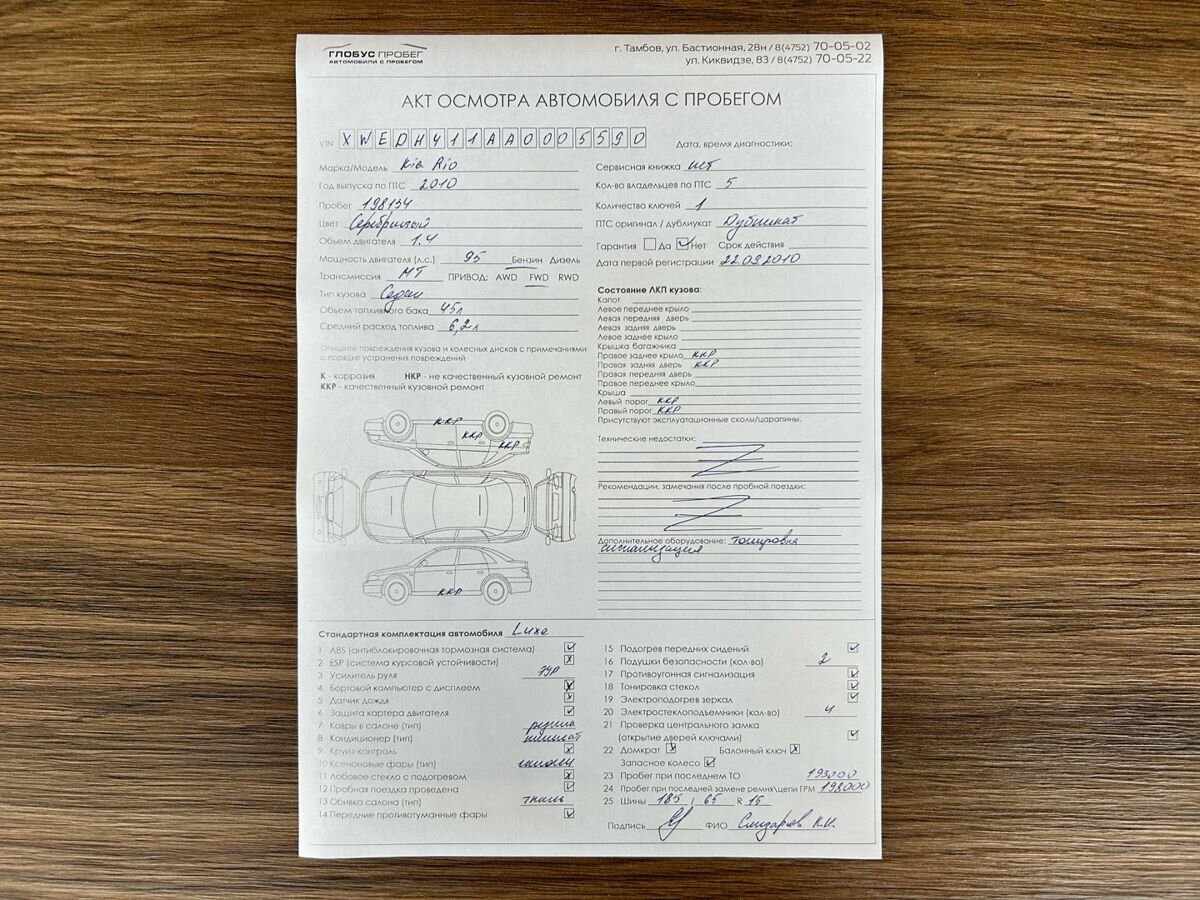 ГЛОБУС ПРОБЕГ
АВТОМОБИЛИ С ПРОБЕГОМ
г. Тамбов, ул. Бастионная, 28н / 8(4752) 70-05-02
ул. Киквидзе, 83 / 8(4752) 70-05-22
АКТ ОСМОТРА АВТОМОБИЛЯ С ПРОБЕГОМ
VIN XWEDH411AA0005590
Дата, время диагностики:
Марка/Модель Kia Rio
Год выпуска по ПТС 2010
Пробег 198134
Цвет Серебристый
Объем двигателя 1.4
Мощность двигателя (л.с.) 95 Бензин Дизель
Трансмиссия МТ ПРИВОД: AWD FWD RWD
Тип кузова Седан
Объем топливного бака 45л
Средний расход топлива 6,2л
Сервисная книжка нет
Кол-во владельцев по ПТС 5
Количество ключей 1
ПТС оригинал / дубликат Дубликат
Гарантия Да Нет Срок действия
Дата первой регистрации 22.09.2010
Опишите повреждения кузова и колесных дисков с примечаниями
о порядке устранения повреждений
К - коррозия НКР - не качественный кузовной ремонт
ККР - качественный кузовной ремонт
ККР
ККР
ККР
ККР
Состояние ЛКП кузова:
Капот
Левое переднее крыло
Левая передняя дверь
Левая задняя дверь
Левое заднее крыло
Крышка багажника
Правое заднее крыло ККР
Правая задняя дверь ККР
Правая передняя дверь
Правое переднее крыло
Крыша
Левый порог ККР
Правый порог ККР
Присутствуют эксплуатационные сколы/царапины.
Технические недостатки:
Рекомендации, замечания после пробной поездки:
Дополнительное оборудование: Тонировка
сигнализация
Стандартная комплектация автомобиля Luxe
1 ABS (антиблокировочная тормозная система)
2 ESP (система курсовой устойчивости)
3 Усилитель руля ЭУР
4 Бортовой компьютер с дисплеем
5 Датчик дождя
6 Защита картера двигателя
7 Ковры в салоне (тип) резина
8 Кондиционер (тип) климат
9 Круиз-контроль
10 Ксеноновые фары (тип)
11 Лобовое стекло с подогревом
12 Пробная поездка проведена
13 Обивка салона (тип) ткань
14 Передние противотуманные фары
15 Подогрев передних сидений
16 Подушки безопасности (кол-во) 2
17 Противоугонная сигнализация
18 Тонировка стекол
19 Электроподогрев зеркал
20 Электростеклоподъемники (кол-во) 4
21 Проверка центрального замка
(открытие дверей ключами)
22 Домкрат Балонный ключ
Запасное колесо
23 Пробег при последнем ТО 193000
24 Пробег при последней замене ремня\цепи ГРМ 192000
25 Шины 185 / 65 R 15
Подпись ФИО К.И.